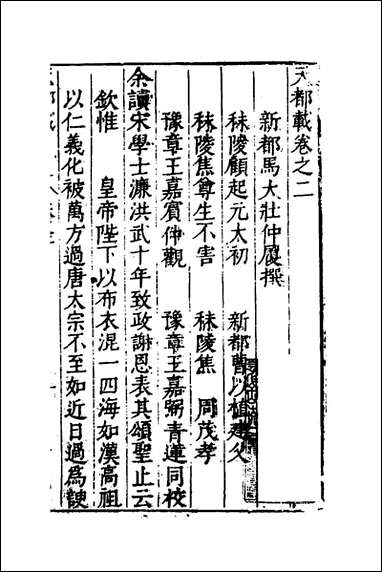 天都載卷之二
新都馬大壯仲履撰
秣陵顧起元太初 新都曹以植建父
秣陵焦尊生不害 秣陵焦 周茂孝
豫章王嘉賓仲觀 豫章王嘉弼青蓮同校
余讀宋學士濂洪武十年致政謝恩表其頌聖止云
欽惟 皇帝陛下以布衣混一四海如漢高祖
以仁義化被萬方過唐太宗不至如近日過為諛